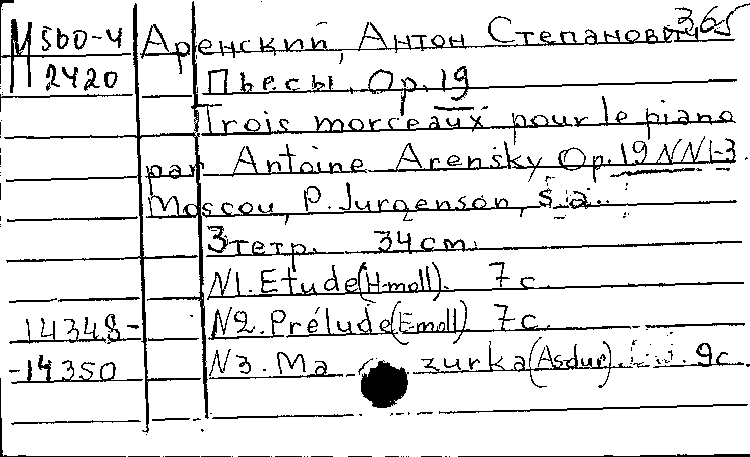 М 560-4 Аренский, Антон Степанович 365
2420 Пьесы, Op. 19
Trois morceaux pour le piano
par Antoine Arensky Op. 19 NN1-3.
Moscou, P. Jurgenson, s.a.
3 тетр. 34 cm.
N1. Etude (H-moll). 7 с.
14348- N2. Prélude (E-moll) 7 с.
-14350 N3. Ma zurka (Asdur). 9 с.